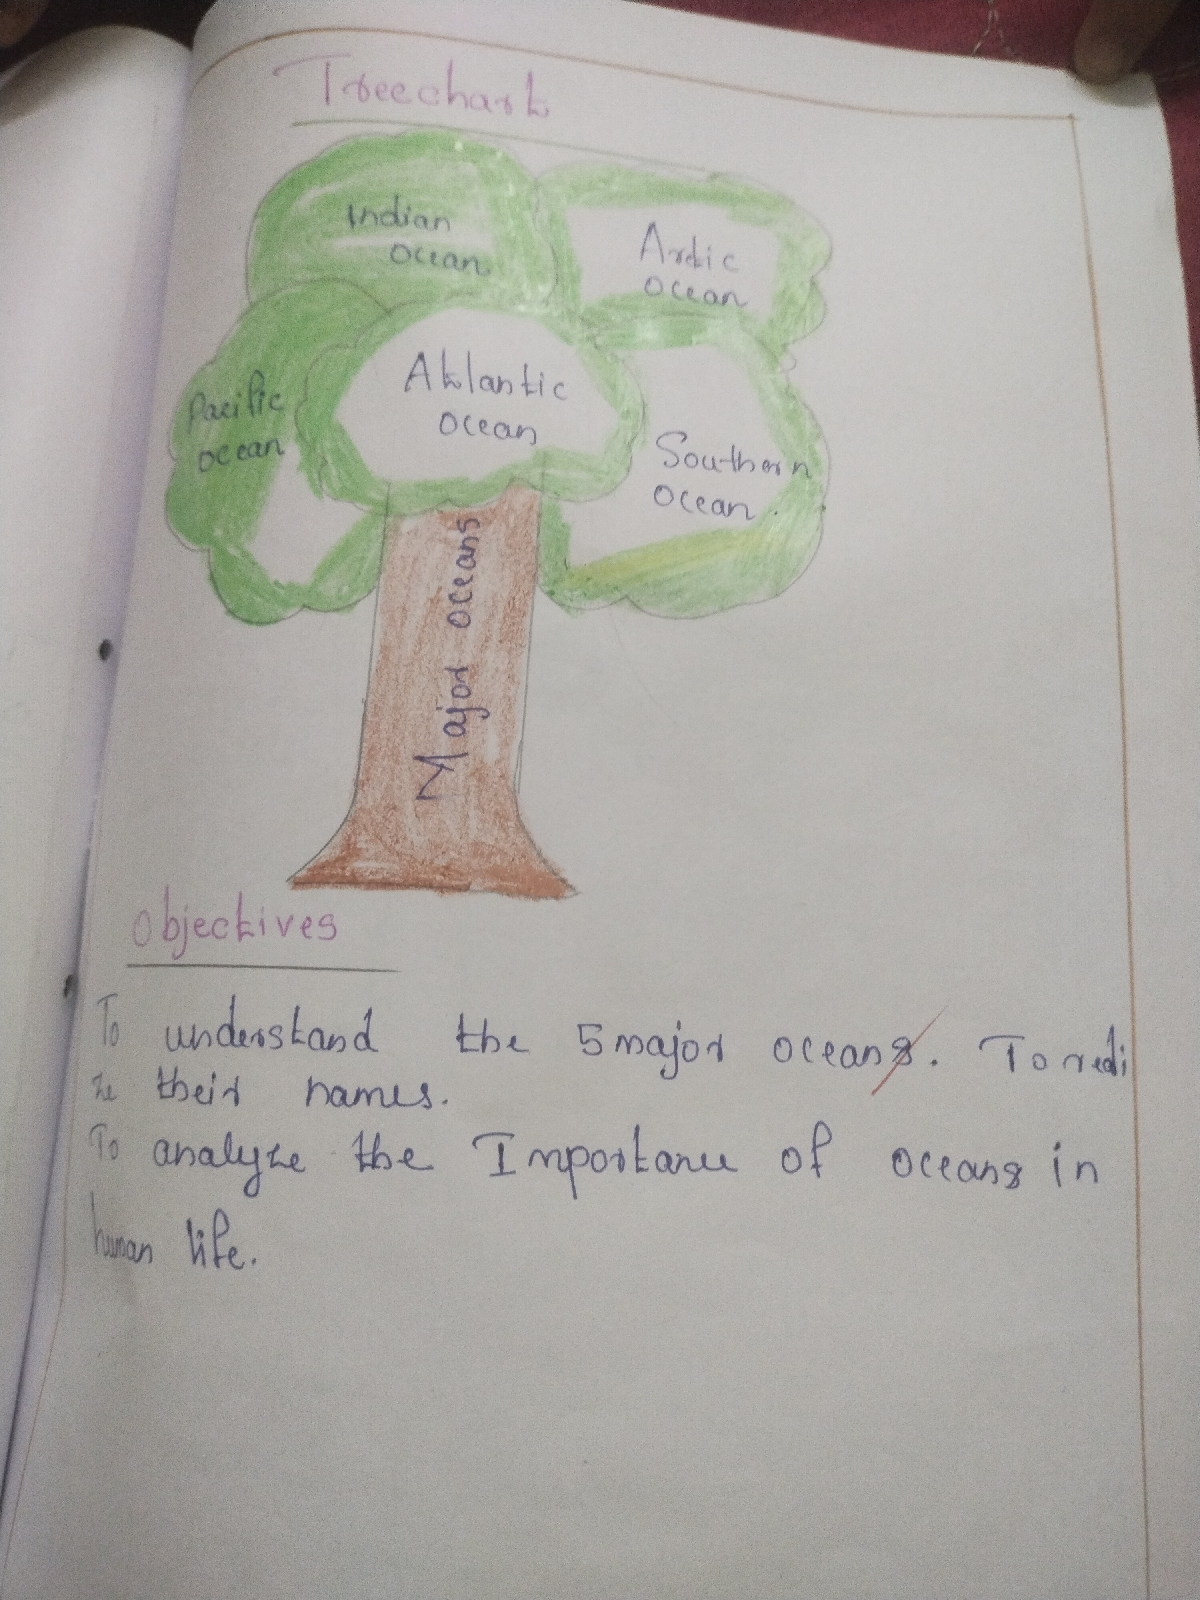 Treechart
Indian
ocean
Artic
ocean
Atlantic
ocean
Pacific
ocean
Southern
ocean.
Major oceans
Objectives
To understand the 5 major oceans. To redi
ze their names.
To analyze the Importance of oceans in
human life.